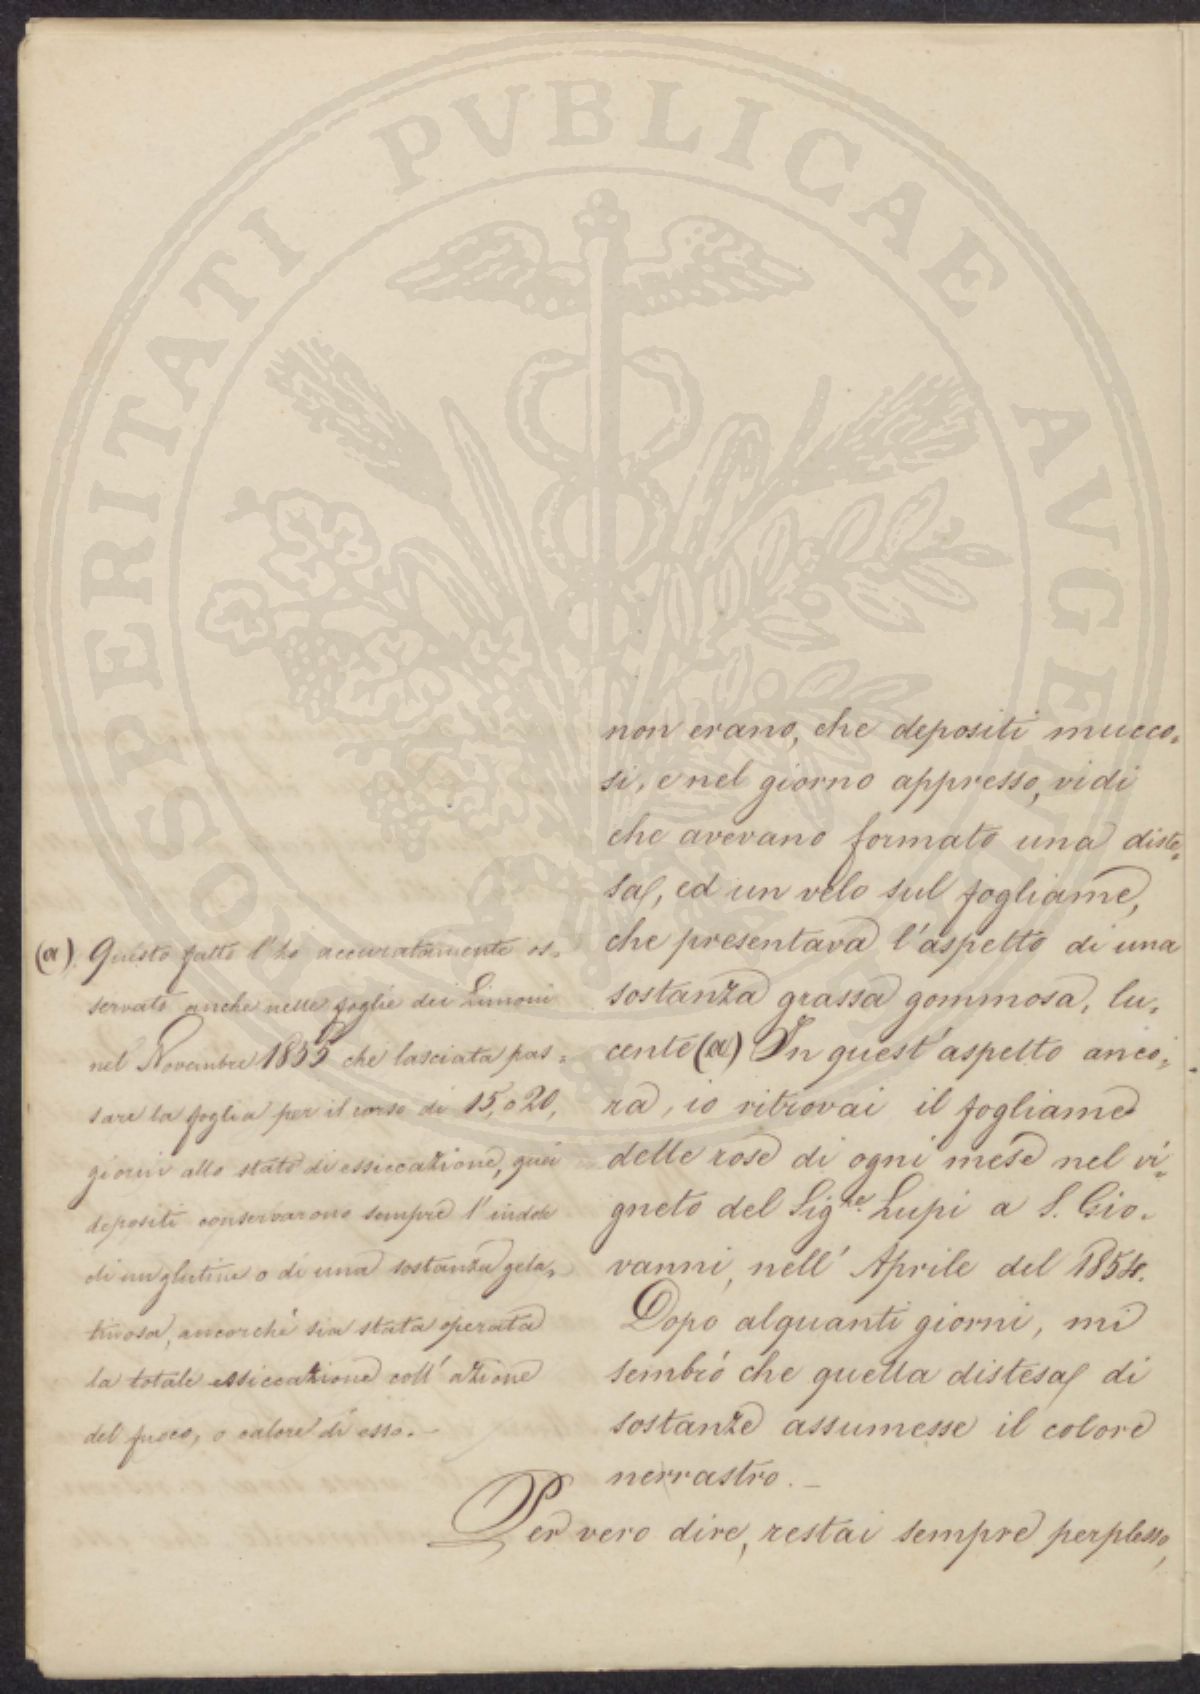 non erano, che depositi mucco=
si, e nel giorno appresso, vidi
che avevano formato una diste=
sa, ed un velo sul fogliame,
che presentava l'aspetto di una
sostanza grassa gommosa, lu=
cente (a) In quest'aspetto anco=
ra, io ritrovai il fogliame
delle rose di ogni mese nel vi=
gneto del Sig.re Lupi a S. Gio=
vanni, nell' Aprile del 1854.
Dopo alquanti giorni, mi
sembrò che quella distesa di
sostanze assumesse il colore
nerrastro. _
Per vero dire, restai sempre perplesso,
(a). Questo fatto l'ho accuratamente os=
servato anche nelle foglie dei Limoni
nel Novembre 1855 che lasciata pas=
sare la foglia per il corso di 15, o 20,
giorni allo stato di essiccazione, quei
depositi conservarono sempre l'indole
di un glutine o di una sostanza gela=
tinosa, ancorchè sia stata operata
la totale essiccazione coll' azione
del fuoco, o calore di esso. _
PROSPERITATI PVBLICAE AVGE